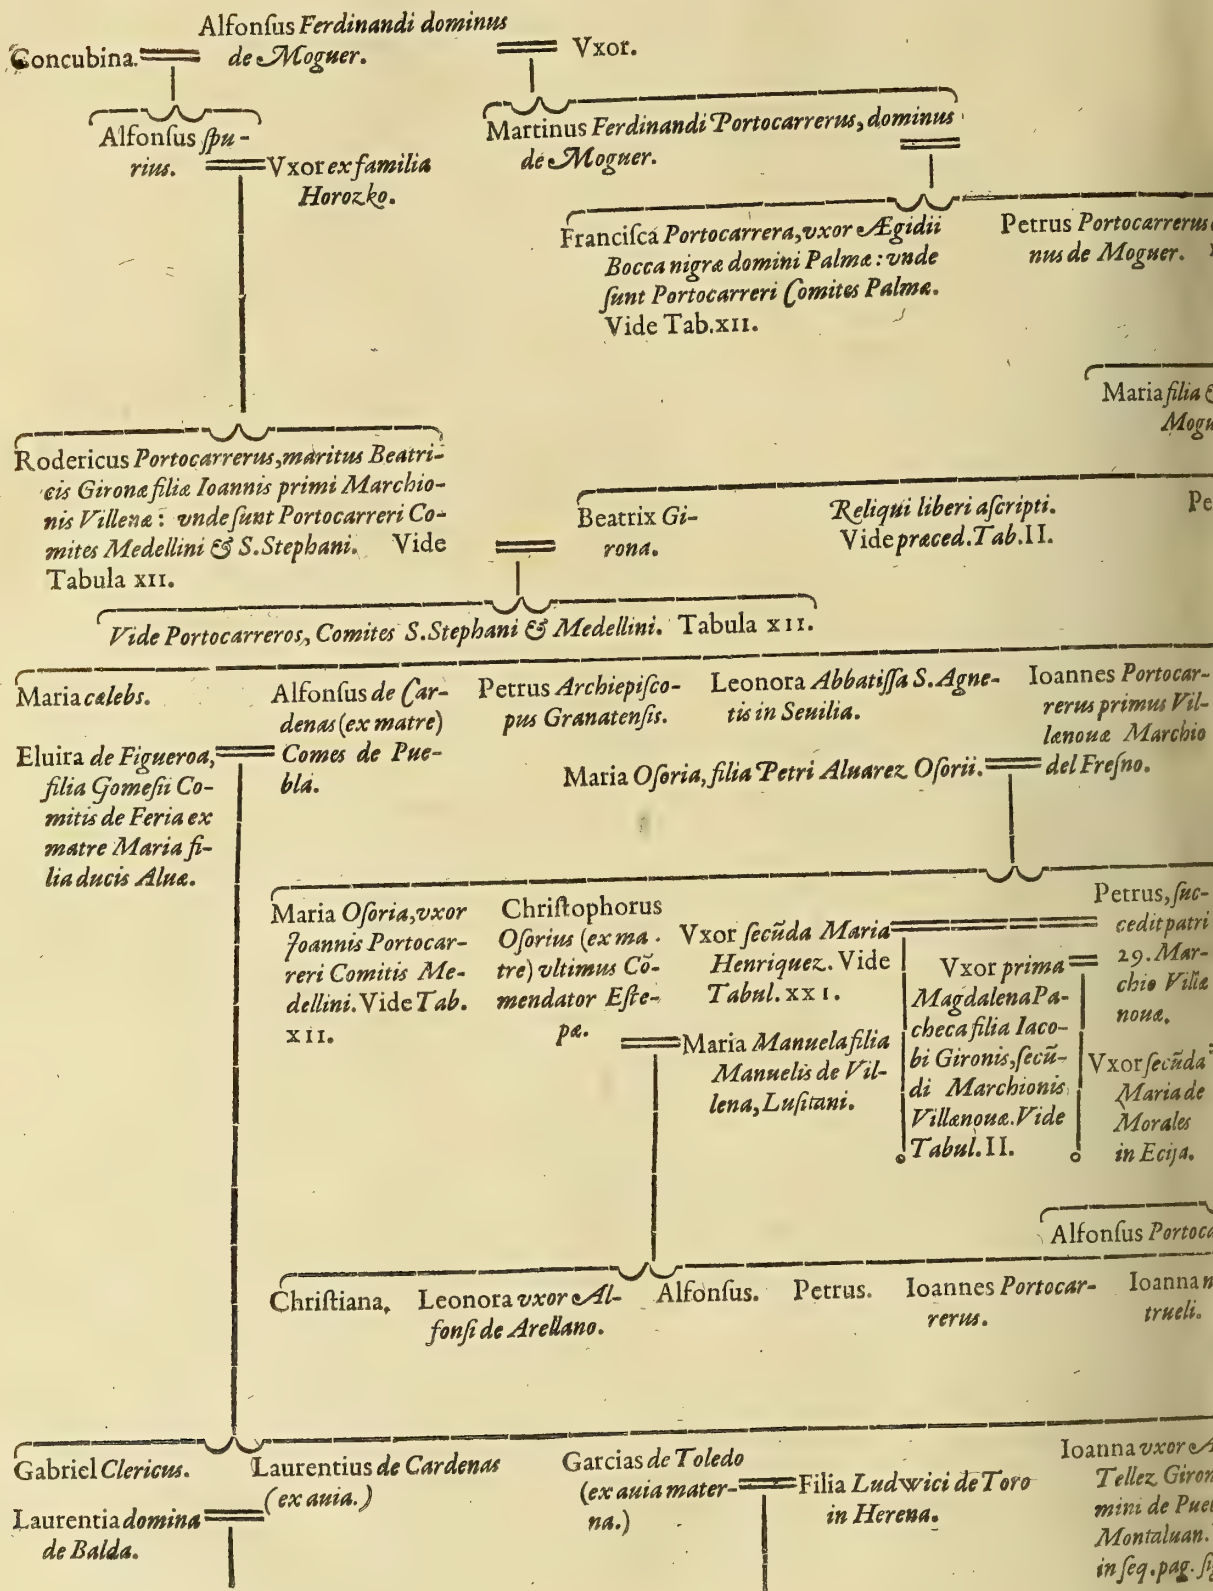 Alfonſus Ferdinandi dominus
Concubina. de Moguer. Vxor.
Alfonſus ſpu-
rius. Vxor ex familia
Horozko.
Martinus Ferdinandi Portocarrerus, dominus
de Moguer.
Franciſca Portocarrera, vxor Ægidii
Bocca nigræ domini Palmæ: vnde
ſunt Portocarreri Comites Palmæ.
Vide Tab. XII.
Petrus Portocarrerus
nus de Moguer.
Maria filia &
Mogu
Rodericus Portocarrerus, maritus Beatri-
cis Gironæ filiæ Ioannis primi Marchio-
nis Villenæ: vnde ſunt Portocarreri Co-
mites Medellini & S. Stephani. Vide
Tabula XII.
Beatrix Gi-
rona.
Reliqui liberi aſcripti.
Vide præced. Tab. II.
Pe
Vide Portocarreros, Comites S. Stephani & Medellini. Tabula XII.
Maria cælebs.
Eluira de Figueroa,
filia Gomeſii Co-
mitis de Feria ex
matre Maria fi-
lia ducis Aluæ.
Alfonſus de Car-
denas (ex matre)
Comes de Pue-
bla.
Petrus Archiepiſco-
pus Granatenſis.
Leonora Abbatiſſa S. Agne-
tis in Seuilia.
Ioannes Portocar-
rerus primus Vil-
lænouæ Marchio
del Freſno.
Maria Oſoria, filia Petri Aluarez Oſorii.
Maria Oſoria, vxor
Joannis Portocar-
reri Comitis Me-
dellini. Vide Tab.
XII.
Chriſtophorus
Oſorius (ex ma-
tre) vltimus Cõ-
mendator Eſte-
pæ.
Maria Manuela filia
Manuelis de Vil-
lena, Luſitani.
Vxor ſecũda Maria
Henriquez. Vide
Tabul. XXI.
Vxor prima
Magdalena Pa-
checa filia Iaco-
bi Gironis, ſecũ-
di Marchionis
Villænouæ. Vide
Tabul. II.
Petrus, ſuc-
cedit patri
29. Mar-
chio Villæ
nouæ.
Vxor ſecũda
Maria de
Morales
in Ecija.
Alfonſus Portoca
Chriſtiana. Leonora vxor Al-
fonſi de Arellano.
Alfonſus. Petrus. Ioannes Portocar-
rerus.
Ioanna
trueli.
Gabriel Clericus.
Laurentia domina
de Balda.
Laurentius de Cardenas
(ex auia.)
Garcias de Toledo
(ex auia mater-
na.)
Filia Ludwici de Toro
in Herena.
Ioanna vxor A
Tellez Giron
mini de Pue
Montaluan.
in ſeq. pag. ſi